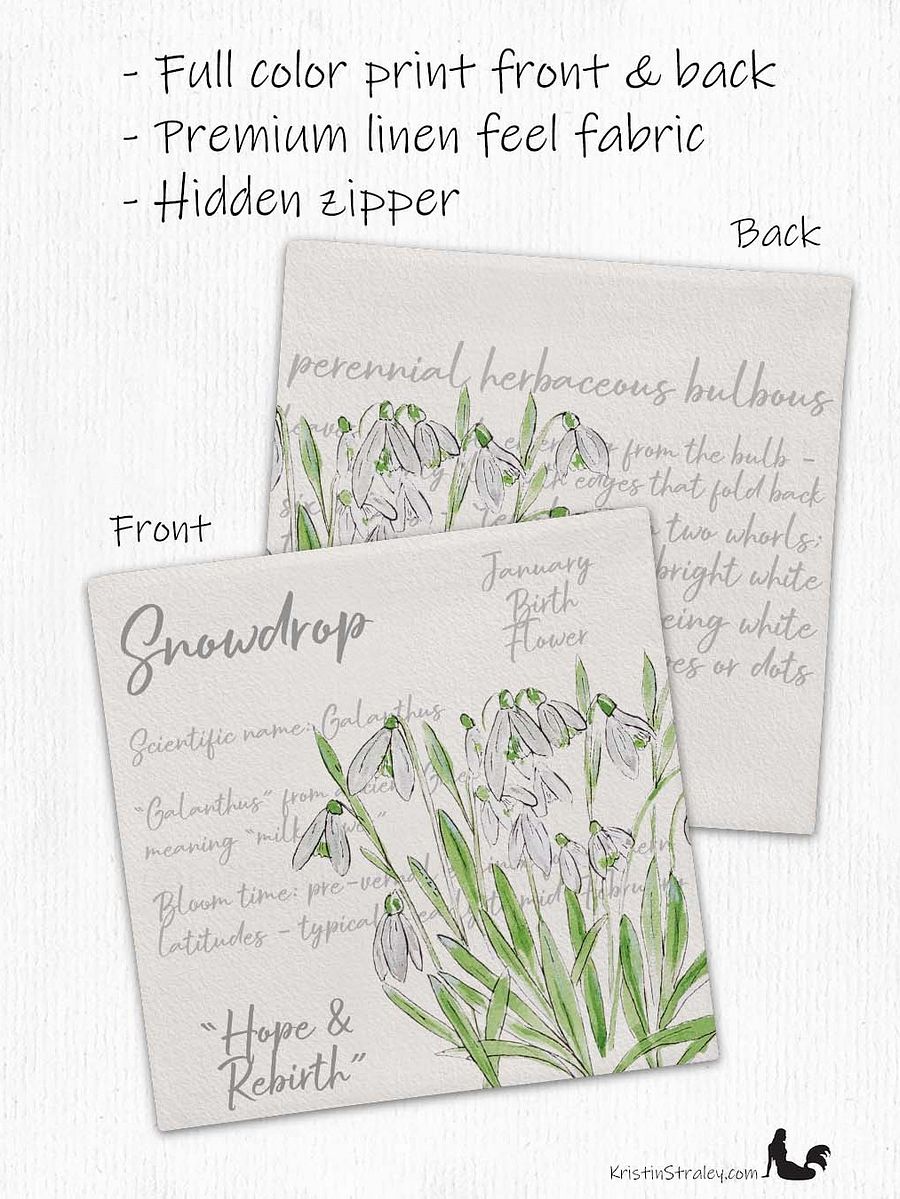 - Full color print front & back
- Premium linen feel fabric
- Hidden zipper
Back
perennial herbaceous bulbous
from the bulb -
edges that fold back
two whorls;
bright white
white
or dots
Front
Snowdrop
January
Birth
Flower
Scientific name: Galanthus
"Galanthus" from
meaning "milk
Bloom time:
latitudes - mid-February
"Hope &
Rebirth"
KristinStraley.com